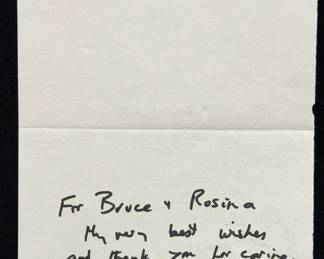 For Bruce & Rosina
My very best wishes
and thank you for caring.